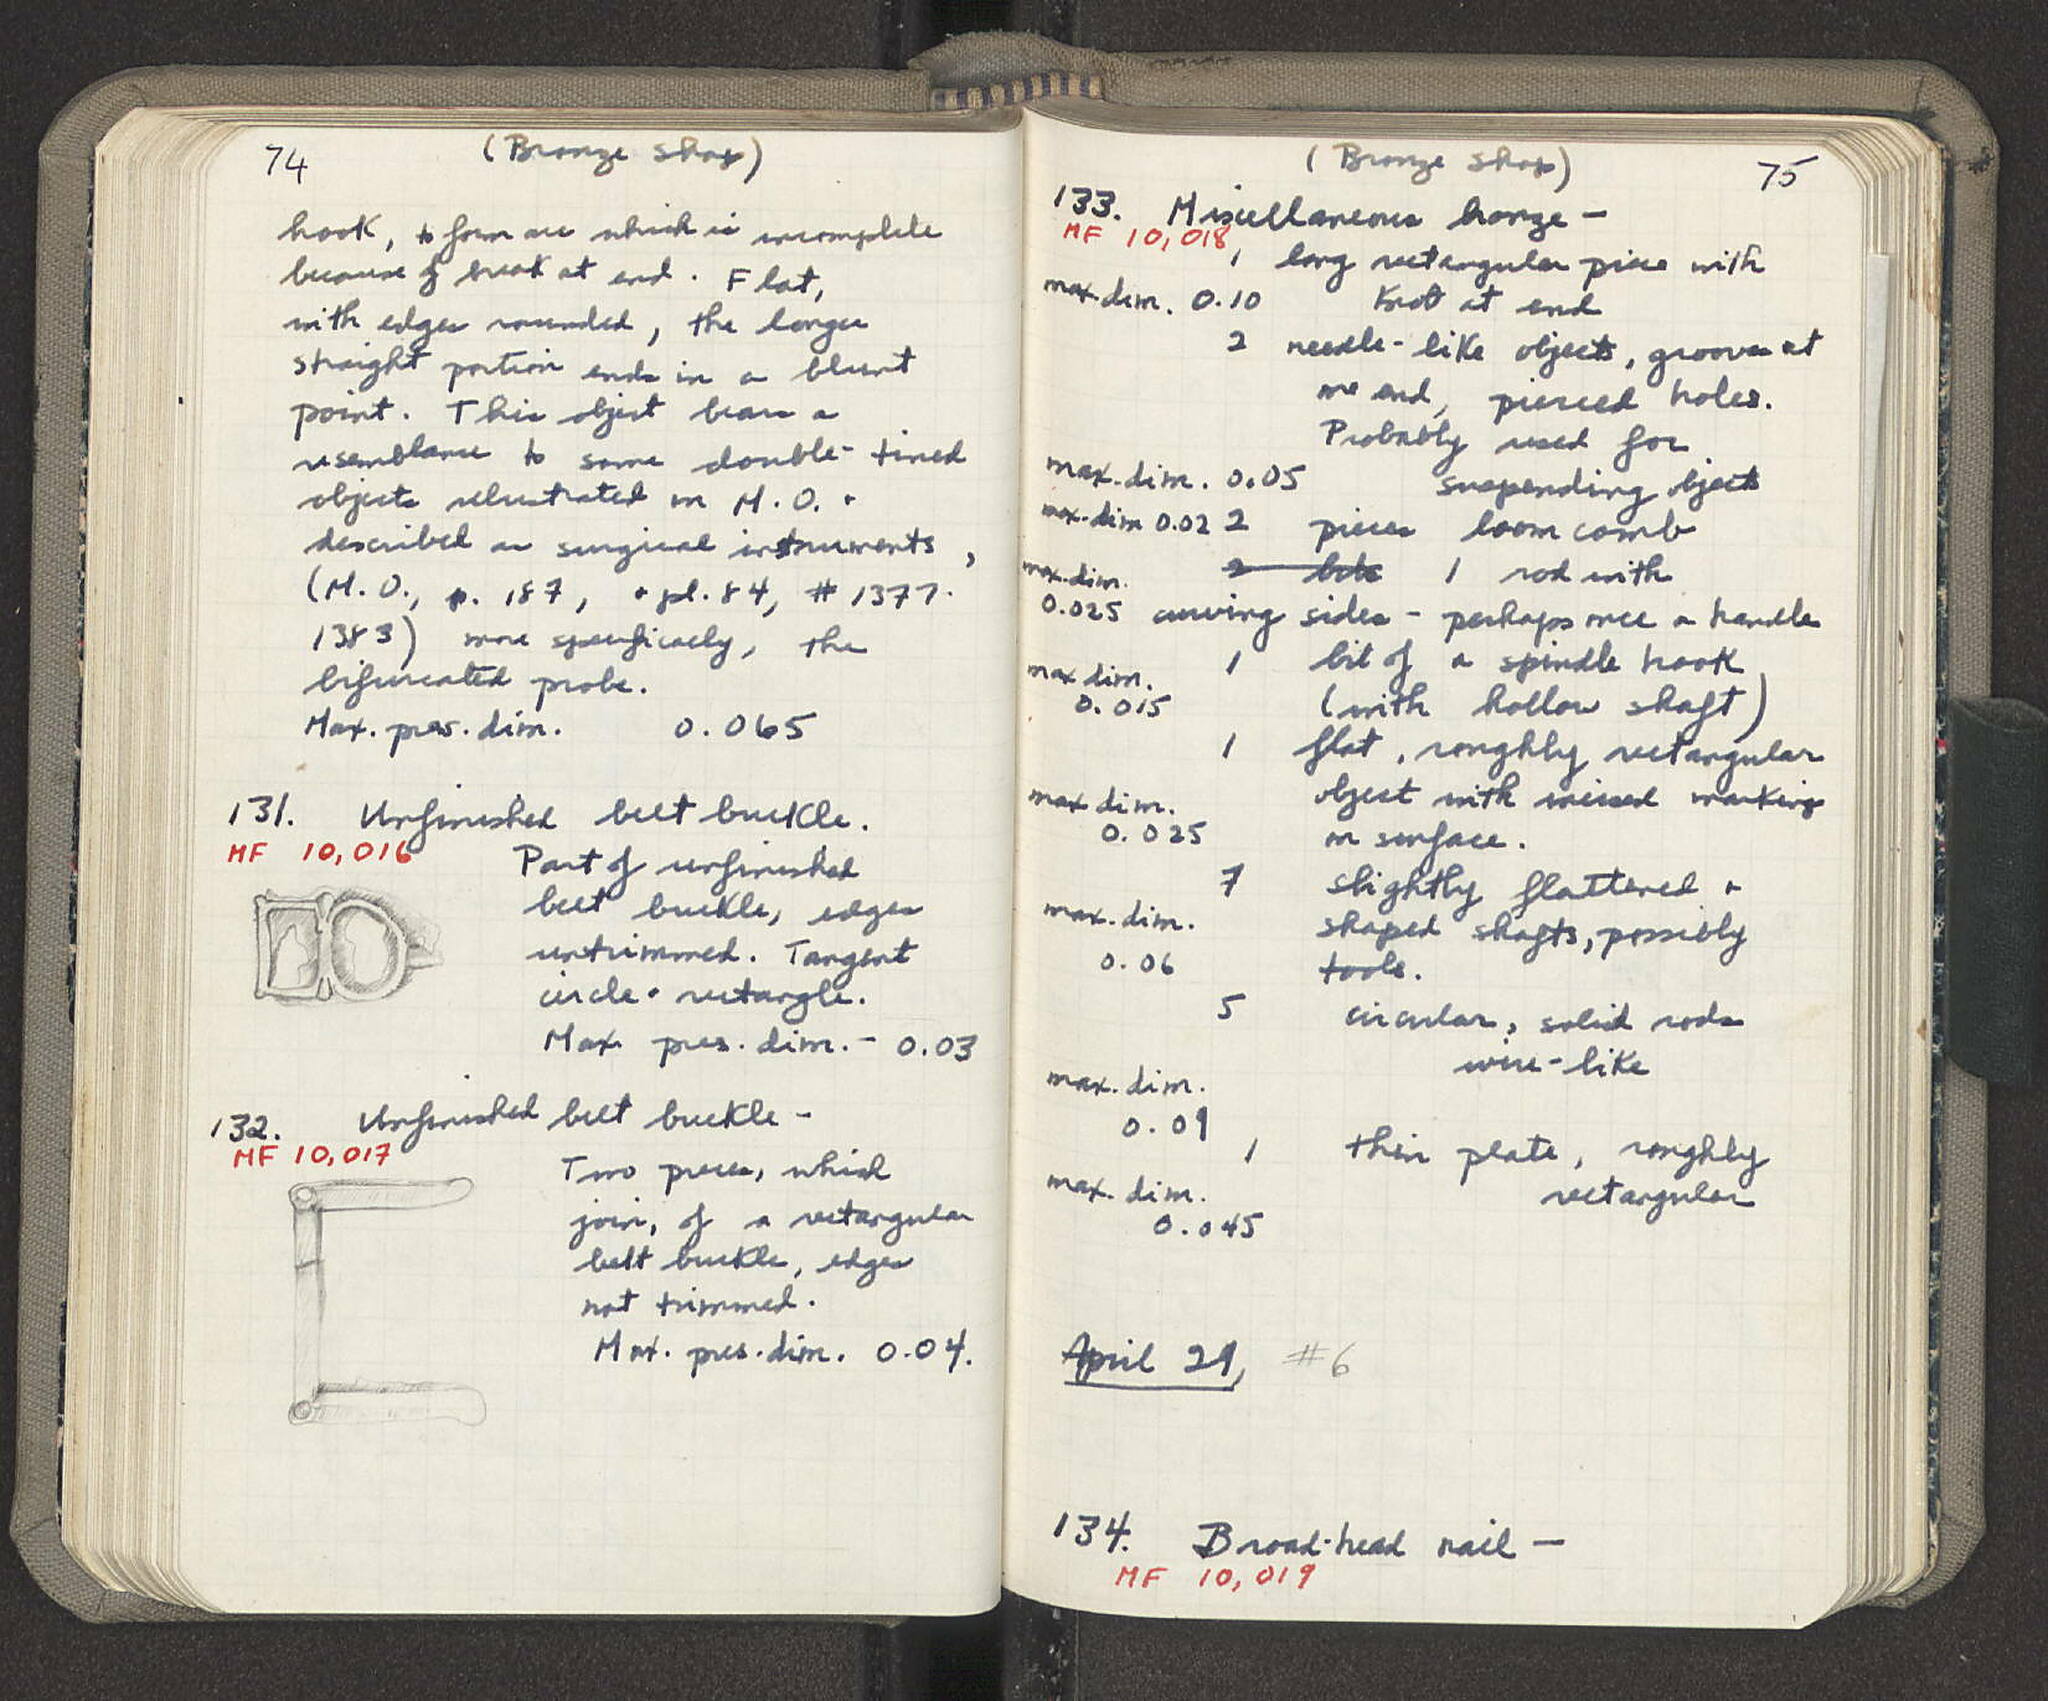 74
(Bronze shop)
hook, to form arc which is incomplete
because of break at end. Flat,
with edges rounded, the longer
straight portion ends in a blunt
point. This object bears a
resemblance to some double-tined
objects illustrated in M.O. +
described as surgical instruments,
(M.O., p. 187, + pl. 84, # 1377-
1383) more specifically, the
bifurcated probe.
Max. pres. dim. 0.065
131. Unfinished belt buckle.
MF 10,016
Part of unfinished
belt buckle, edges
untrimmed. Tangent
circle + rectangle.
Max pres. dim. - 0.03
132. Unfinished belt buckle -
MF 10,017
Two pieces, which
join, of a rectangular
belt buckle, edges
not trimmed.
Max. pres. dim. 0.04.
(Bronze shop)
75
133. Miscellaneous bronze -
MF 10,018
1 long rectangular piece with
max. dim. 0.10 knot at end
2 needle-like objects, grooves at
one end, pierced holes.
Probably used for
max. dim. 0.05 suspending objects
max. dim 0.02 2 pieces loom comb
max. dim. 2 bits 1 rod with
0.025 curving sides - perhaps once a handle
max dim. 1 bit of a spindle hook
0.015 (with hollow shaft)
1 flat, roughly rectangular
max dim. object with incised markings
0.025 on surface.
7 slightly flattened +
max. dim. shaped shafts, possibly
0.06 tools.
5 circular, solid rods
wire-like
max. dim.
0.09
1 thin plate, roughly
max. dim. rectangular
0.045
April 29, #6
134. Broad-head nail -
MF 10,019